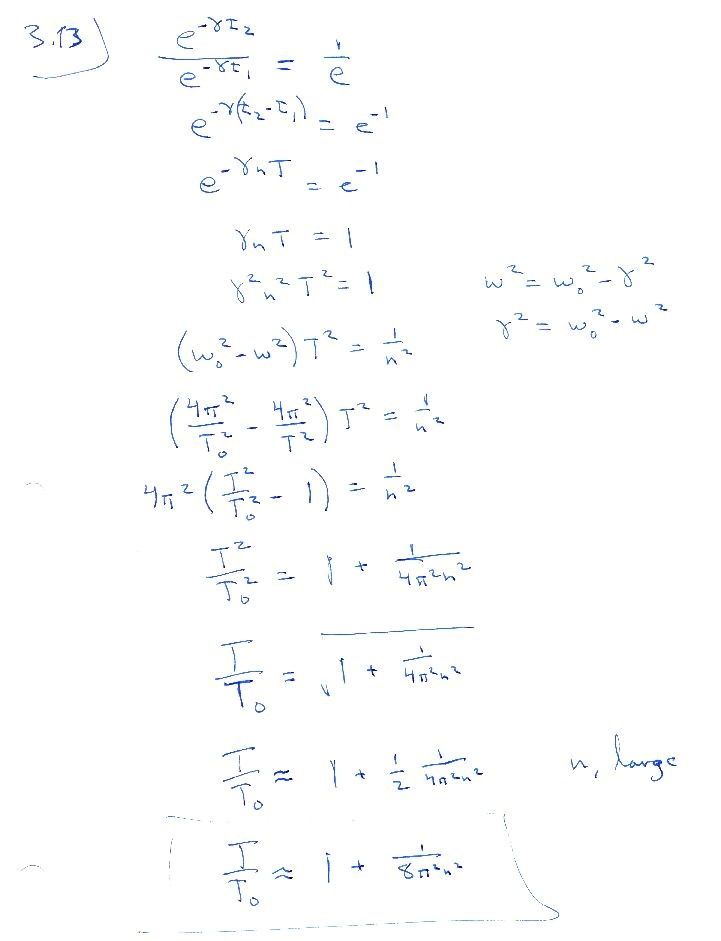 3.13) e^{-γt₂} / e^{-γt₁} = 1/e
e^{-γ(t₂-t₁)} = e^{-1}
e^{-γnT} = e^{-1}
γnT = 1
γ²n²T² = 1
ω² = ω₀² - γ²
γ² = ω₀² - ω²
(ω₀² - ω²)T² = 1/n²
(4π²/T₀² - 4π²/T²)T² = 1/n²
4π²(T²/T₀² - 1) = 1/n²
T²/T₀² = 1 + 1/(4π²n²)
T/T₀ = √(1 + 1/(4π²n²))
T/T₀ ≈ 1 + 1/2 1/(4π²n²) n, large
T/T₀ ≈ 1 + 1/(8π²n²)